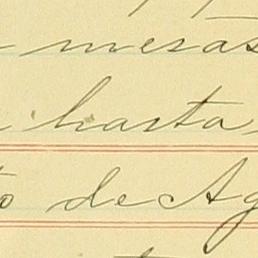 mesas
hasta
de Ag